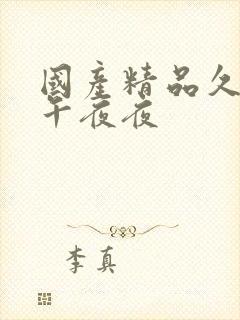 國產精品久
午夜夜
李真